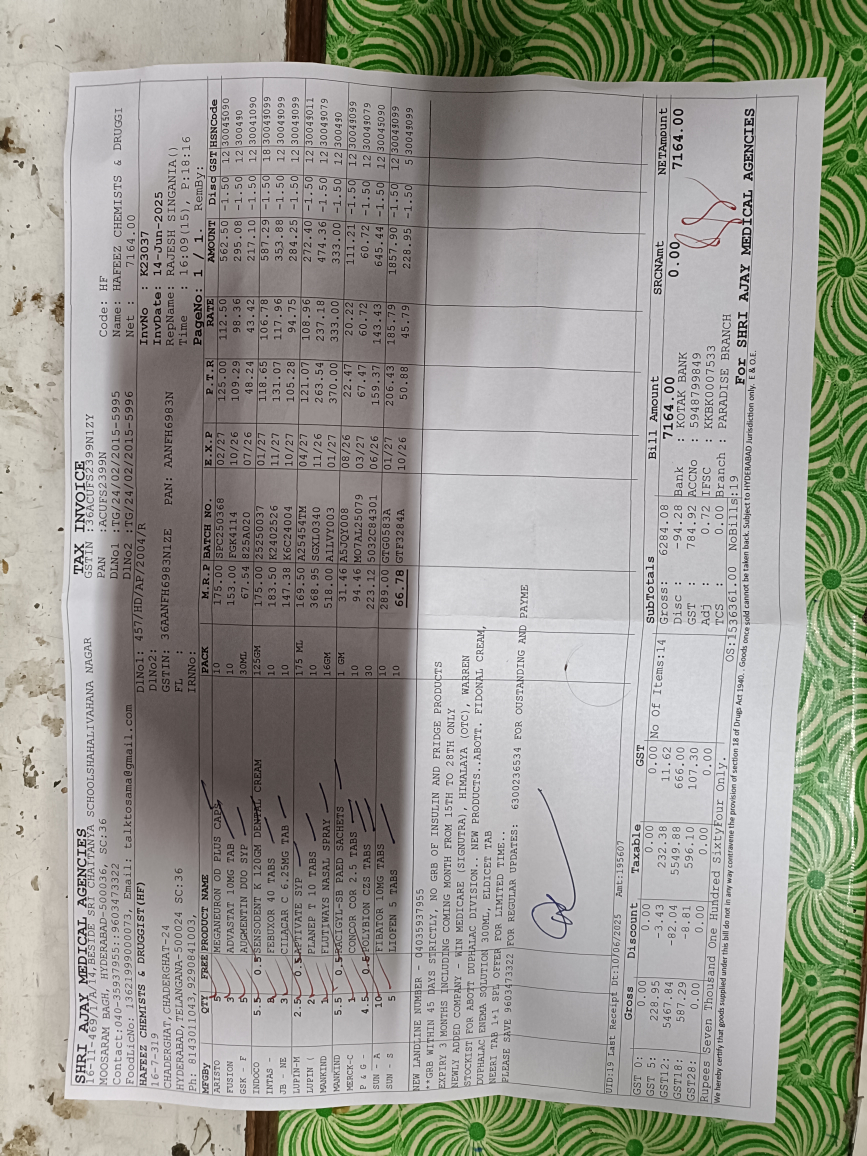 SHRI AJAY MEDICAL AGENCIES
16-11-469/1/A/14,BESIDE SRI CHAITANYA SCHOOLSHAHALIVAHANA NAGAR
MOOSARAM BAGH, HYDERABAD-500036, SC:36
Contact:040-35937955::9603473322
FoodLicNo: 13621999000073, Email: talktosama@gmail.com
TAX INVOICE
GSTIN :36ACUFS2399N1ZY
PAN :ACUFS2399N
DLNo1 :TG/24/02/2015-5995
DLNo2 :TG/24/02/2015-5996
Code: HF
Name: HAFEEZ CHEMISTS & DRUGGI
Net : 7164.00
HAFEEZ CHEMISTS & DRUGGIST(HF)
16-7-319
CHADERGHAT,CHADERGHAT-24
HYDERABAD,TELANGANA-500024 SC:36
Ph: 8143011043,9290841003,
DlNo1: 457/HD/AP/2004/R
DlNo2:
GSTIN: 36AANFH6983N1ZE PAN: AANFH6983N
FL :
IRNNo:
InvNo : K23037
InvDate: 14-Jun-2025
RepName: RAJESH SINGANIA()
Time : 16:09(15), P:18:16
PageNo: 1 / 1. RemBy:
MFGBy QTY FREE PRODUCT NAME PACK M.R.P BATCH NO. E.X.P P.T.R RATE AMOUNT Disc GST HSNCode
ARISTO 5 MEGANEURON OD PLUS CAPS 10 175.00 SPC250368 02/27 125.00 112.50 562.50 -1.50 12 30045090
FUSION 3 ADVASTAT 10MG TAB 10 153.00 FGK4114 10/26 109.29 98.36 295.08 -1.50 12 300490
GSK - F 5 AUGMENTIN DUO SYP 30ML 67.54 825A020 07/26 48.24 43.42 217.10 -1.50 12 30041090
INDOCO 5.5 0.5 SENSODENT K 120GM DENTAL CREAM 125GM 175.00 25250037 01/27 118.65 106.78 587.29 -1.50 18 30049099
INTAS - FEBUXOR 40 TABS 10 183.50 K2402526 11/27 131.07 117.96 353.88 -1.50 12 30049099
JB - NE 3 CILACAR C 6.25MG TAB 10 147.38 K6C24004 10/27 105.28 94.75 284.25 -1.50 12 30049099
LUPIN-M 2.5 0.5 APTIVATE SYP 175 ML 169.50 A25454TM 04/27 121.07 108.96 272.40 -1.50 12 30049011
LUPIN ( 2 PLANEP T 10 TABS 10 368.95 SGXL0340 11/26 263.54 237.18 474.36 -1.50 12 30049079
MANKIND 1 FLUTIWAYS NASAL SPRAY 16GM 518.00 A11VY003 01/27 370.00 333.00 333.00 -1.50 12 300490
MANKIND 5.5 0.5 RACIGYL-SB PAED SACHETS 1 GM 31.46 A5JQY008 08/26 22.47 20.22 111.21 -1.50 12 30049099
MERCK-C 1 CONCOR COR 2.5 TABS 10 94.46 MO7AL25079 03/27 67.47 60.72 60.72 -1.50 12 30049079
P & G - 4.5 0.5 POLYBION CZS TABS 30 223.12 5032C84301 06/26 159.37 143.43 645.44 -1.50 12 30045090
SUN - A 10 FIBATOR 10MG TABS 10 289.00 GTG0583A 01/27 206.43 185.79 1857.90 -1.50 12 30049099
SUN - S 5 LIOFEN 5 TABS 10 66.78 GTF3284A 10/26 50.88 45.79 228.95 -1.50 5 30049099
NEW LANDLINE NUMBER - 04035937955
**GRB WITHIN 45 DAYS STRICTLY, NO GRB OF INSULIN AND FRIDGE PRODUCTS
EXPIRY 3 MONTHS INCLUDING COMING MONTH FROM 15TH TO 28TH ONLY
NEWLY ADDED COMPANY - WIN MEDICARE (SIGNUTRA), HIMALAYA (OTC), WARREN
STOCKIST FOR ABOTT DUPHALAC DIVISION .. NEW PRODUCTS..ABOTT. FIDONAL CREAM,
DUPHALAC ENEMA SOLUTION 300ML, ELDICET TAB
NEERI TAB 1+1 SPL OFFER FOR LIMITED TIME..
PLEASE SAVE 9603473322 FOR REGULAR UPDATES: 6300236534 FOR OUSTANDING AND PAYME
UID:19 Last Receipt Dt:10/06/2025 Amt:195607
Gross Discount Taxable GST
GST 0: 0.00 0.00 0.00 0.00
GST 5: 228.95 -3.43 232.38 11.62
GST12: 5467.84 -82.04 5549.88 666.00
GST18: 587.29 -8.81 596.10 107.30
GST28: 0.00 0.00 0.00 0.00
No Of Items:14
SubTotals
Gross: 6284.08
Disc : -94.28
GST : 784.92
Adj : 0.72
TCS : 0.00
Bill Amount SRCNAmt NETAmount
7164.00 0.00 7164.00
Bank : KOTAK BANK
ACCNo : 5948799849
IFSC : KKBK0007533
Branch : PARADISE BRANCH
Rupees Seven Thousand One Hundred SixtyFour Only.
OS:1536361.00 NoBills:19
For SHRI AJAY MEDICAL AGENCIES
We hereby certify that goods supplied under this bill do not in any way contravene the provision of section 18 of Drugs Act 1940. . Goods once sold cannot be taken back. Subject to HYDERABAD Jurisdiction only. E & O.E.